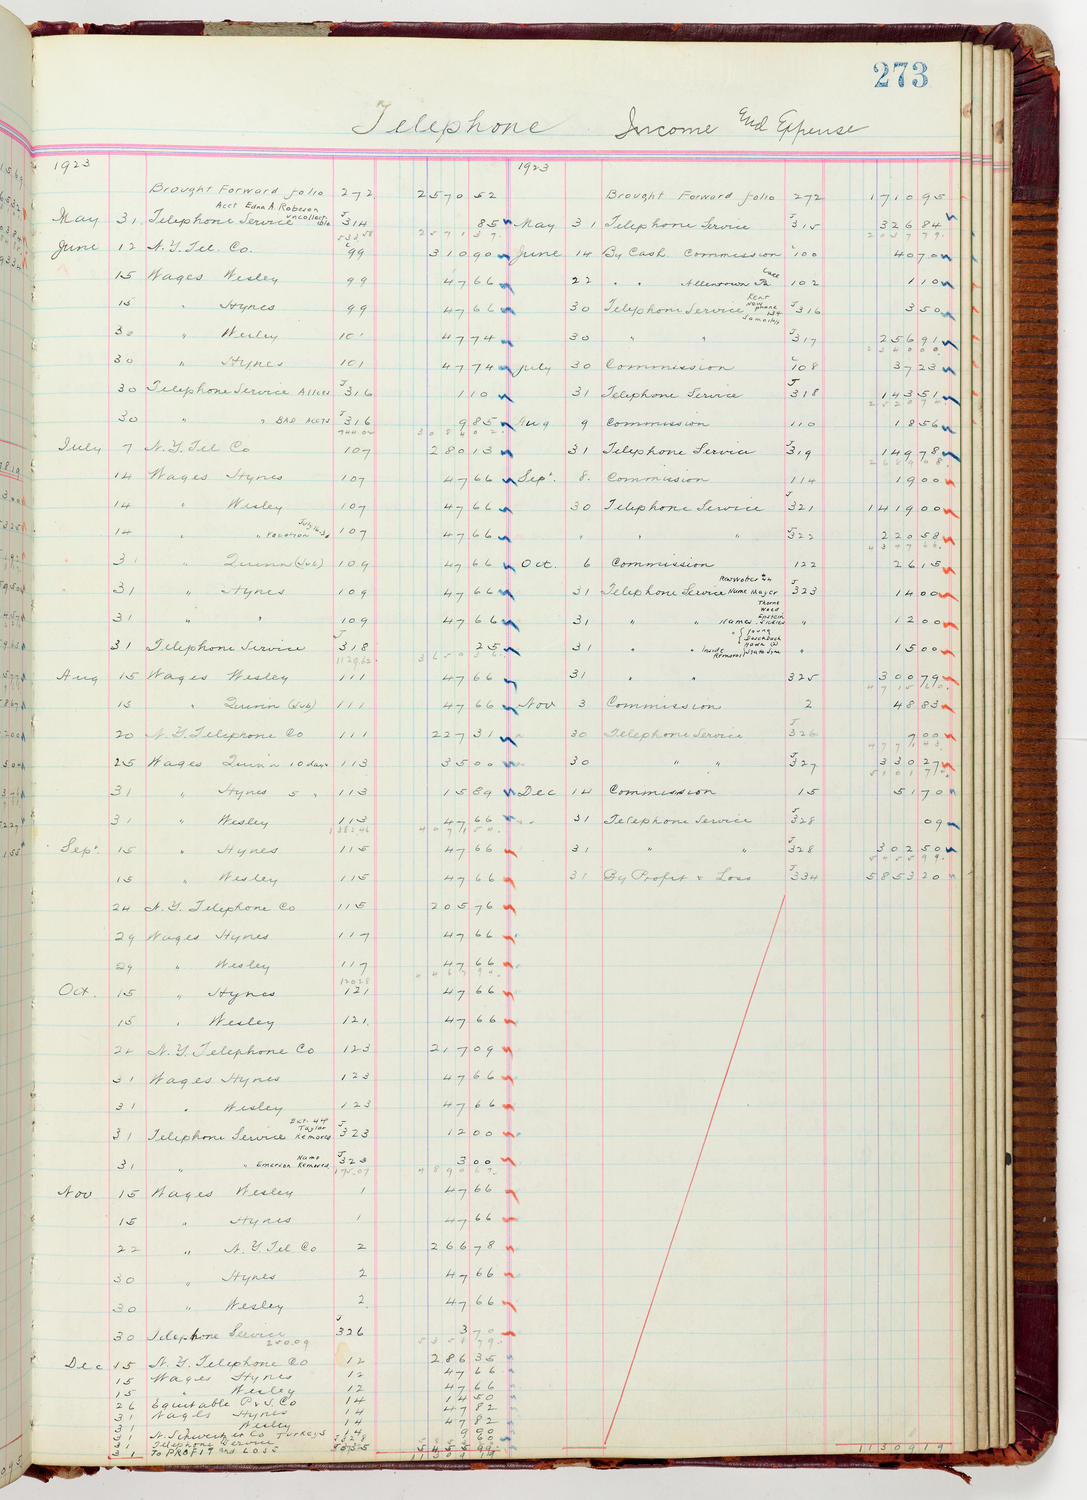 273
Telephone Income And Expense
1923
Brought Forward folio 272 2570 52
Acct Edna A. Roberson
May 31 Telephone Service uncollectible J314 85
2571 37
June 12 N.Y. Tel. Co. 99 310 90
15 Wages Wesley 99 47 66
15 " Hynes 99 47 66
30 " Wesley 101 47 74
30 " Hynes 101 47 74
30 Telephone Service J316 1 10
30 " " BAD ACCTS J316 9 85
July 7 N.Y. Tel Co 107 280 13
14 Wages Hynes 107 47 66
14 " Wesley 107 47 66
14 " " Vacation 107 47 66
31 " Quinn (Sub) 109 47 66
31 " Hynes 109 47 66
31 " " 109 47 66
31 Telephone Service J318 25
Aug 15 Wages Wesley 111 47 66
15 " Quinn (Sub) 111 47 66
20 N.Y. Telephone Co 111 227 31
25 Wages Quinn 10 days 113 35 00
31 " Hynes 5 " 113 15 89
31 " Wesley 113 47 66
Sept. 15 " Hynes 115 47 66
15 " Wesley 115 47 66
24 N.Y. Telephone Co 115 205 76
29 Wages Hynes 117 47 66
29 " Wesley 117 47 66
Oct. 15 " Hynes 121 47 66
15 " Wesley 121 47 66
22 N.Y. Telephone Co 123 217 09
31 Wages Hynes 123 47 66
31 " Wesley 123 47 66
31 Telephone Service Ext. 44 Taylor Removed J323 12 00
31 " " Name Emerson Removed J323 3 00
Nov 15 Wages Wesley 1 47 66
15 " Hynes 1 47 66
22 " N.Y. Tel Co 2 266 78
30 " Hynes 2 47 66
30 " Wesley 2 47 66
30 Telephone Service J326 3 70
250.09
Dec 15 N.Y. Telephone Co 12 286 35
15 Wages Hynes 12 47 66
15 " Wesley 12 47 66
26 Equitable P & S. Co 14 14 50
31 Wages Hynes 14 47 82
31 Wesley 14 47 82
31 Co Turkeys 14 9 00
31 Telephone Service 60
31 To PROFIT and LOSS
11309 19
1923
Brought Forward folio 272 1710 95
May 31 Telephone Service J315 326 84
2037 79
June 14 By Cash Commission 100 40 70
22 " " Allentown Pa 102 1 10
30 Telephone Service Rent New phone J316 3 50
30 " " J317 256 91
2340 00
July 30 Commission 108 37 23
31 Telephone Service J318 143 51
Aug 9 Commission 110 18 56
31 Telephone Service J319 149 78
Sept. 8 Commission 114 19 00
30 Telephone Service J321 1419 00
" " " J322 220 58
Oct. 6 Commission 122 26 15
31 Telephone Service Name Mayer J323 14 00
31 " " Names Thorne Weed Epstein " 12 00
31 " " Inside Removed " 15 00
31 " " 325 300 79
Nov 3 Commission 2 48 83
30 Telephone Service J326 7 00
30 " " J327 330 27
Dec 14 Commission 15 51 70
31 Telephone Service J328 09
31 " " J328 302 50
5455 99
31 By Profit & Loss J334 5853 20
11309 19